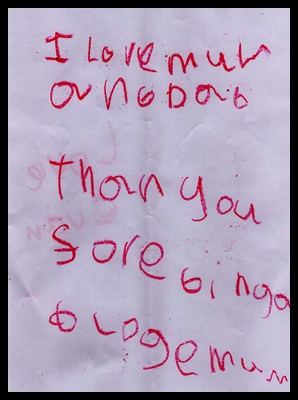 I Love mum
anb Dab
than you
fore bing a
bloge mum